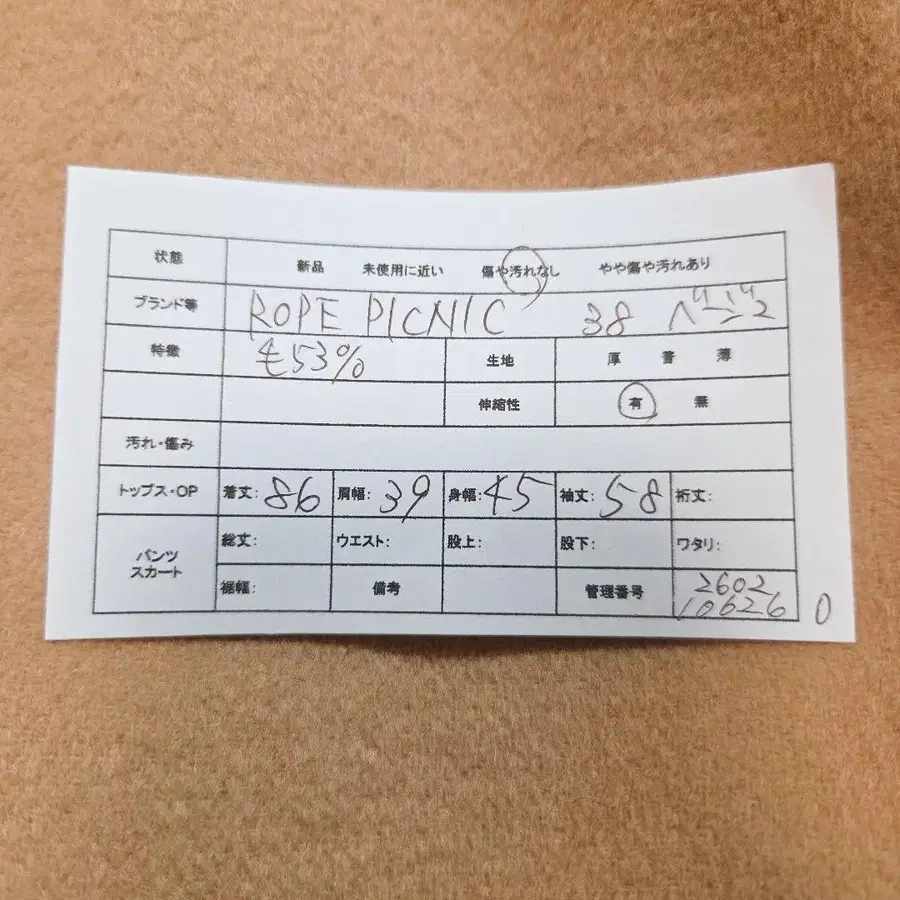 状態 新品 未使用に近い 傷や汚れなし やや傷や汚れあり
ブランド等 ROPE PICNIC 38 ベージュ
特徴 毛53% 生地 厚 普 薄
伸縮性 有 無
汚れ・傷み
トップス・OP 着丈:86 肩幅:39 身幅:45 袖丈:58 裄丈:
パンツ スカート 総丈: ウエスト: 股上: 股下: ワタリ:
裾幅: 備考 管理番号 2602
10626 0